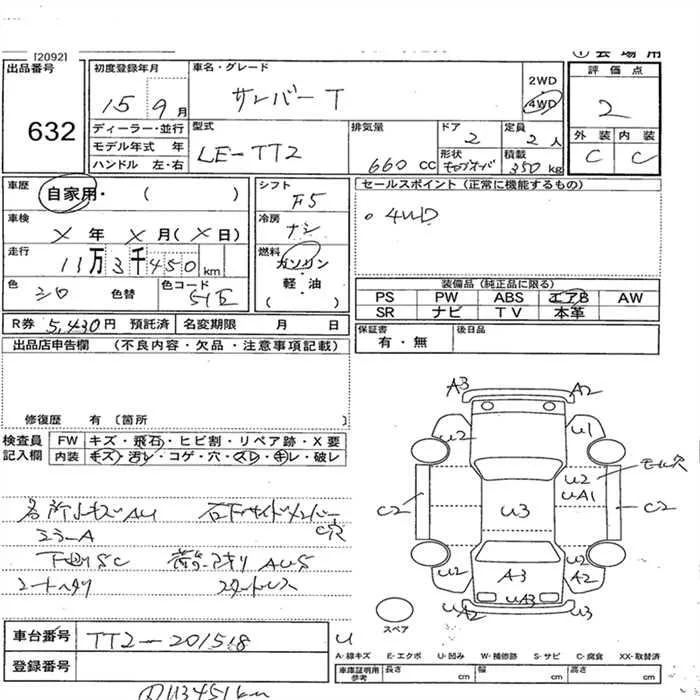 [2092]
① 会場用
出品番号
632
初度登録年月
15 9月
車名・グレード
サンバー T
2WD
4WD
評価点
2
外装 内装
C C
ディーラー・並行
モデル年式 年
ハンドル 左・右
型式
LE-TT2
排気量
660 CC
ドア
2
定員
2人
形状
積載
350kg
車歴
自家用・( )
車検
X 年 X 月(X 日)
走行
11万3千450km
色
シロ
色替
色コード
51E
シフト
F5
冷房
ナシ
燃料
ガソリン
軽・油
( )
セールスポイント(正常に機能するもの)
○ 4WD
装備品(純正品に限る)
PS PW ABS エアB AW
SR ナビ TV 本革
R券 5,430円 預託済
名変期限 月 日
保証書
有・無
後日品
出品店申告欄 (不良内容・欠品・注意事項記載)
修復歴 有〔箇所 〕
検査員
記入欄
FW キズ・飛石・ヒビ割・リペア跡・X要
内装 キズ・汚レ・コゲ・穴・スレ・キレ・破レ
各所 AU
石下サイドメンバー
C穴
ミラーA
下廻りSC
荷台 AUS
シートヘタリ
スタートレス
A3
A2
U2
U1
モール穴
U2
UA1
C2
U3
C2
U2
U2
A2
A3
UA3
UA2
U3
スペア
車台番号
TT2-201518
登録番号
U
A-線キズ E-エクボ U-凹み W-補修跡 S-サビ C-腐食 XX-取替済
車庫証明用
参考
長さ cm 幅 cm 高さ cm
①113451km